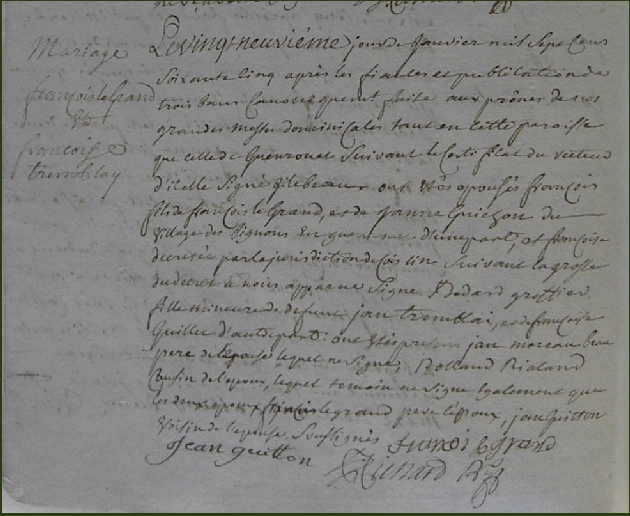 Mariage
françois le Grand
Et
françoise
tremblay
Le vingt neuvième jour de Janvier mil Sept Cens
Soixante Cinq après les fiancles et publication de
trois bans Canoniquement faite aux prônes de nos
grandes Messes dominicales tant en cette paroisse
que celle de Guenrouet Suivant le Certificat du recteur
d'icelle Signé Vilebeau ont Etés épousés françois
fils de françois le Grand, et de Janne Guichon du
village des Mignons En et françoise
decretée par la jurisdiction de Suivant la grosse
du decret à nous apparue Signé Bedard greffier
fille mineure de defunt jan tremblai, et de françoise
Guillet d'autre part. ont étés presens jan moreau beau
pere de l'epouse lequel ne signe, Rolland Rialand
Cousin de l'epoux, lequel temoin ne signe egalement que
les deux epoux françois le grand pere l'époux, jan Guitton
Voisin de l'epouse, Soussignés françois le Grand
Jean guitton